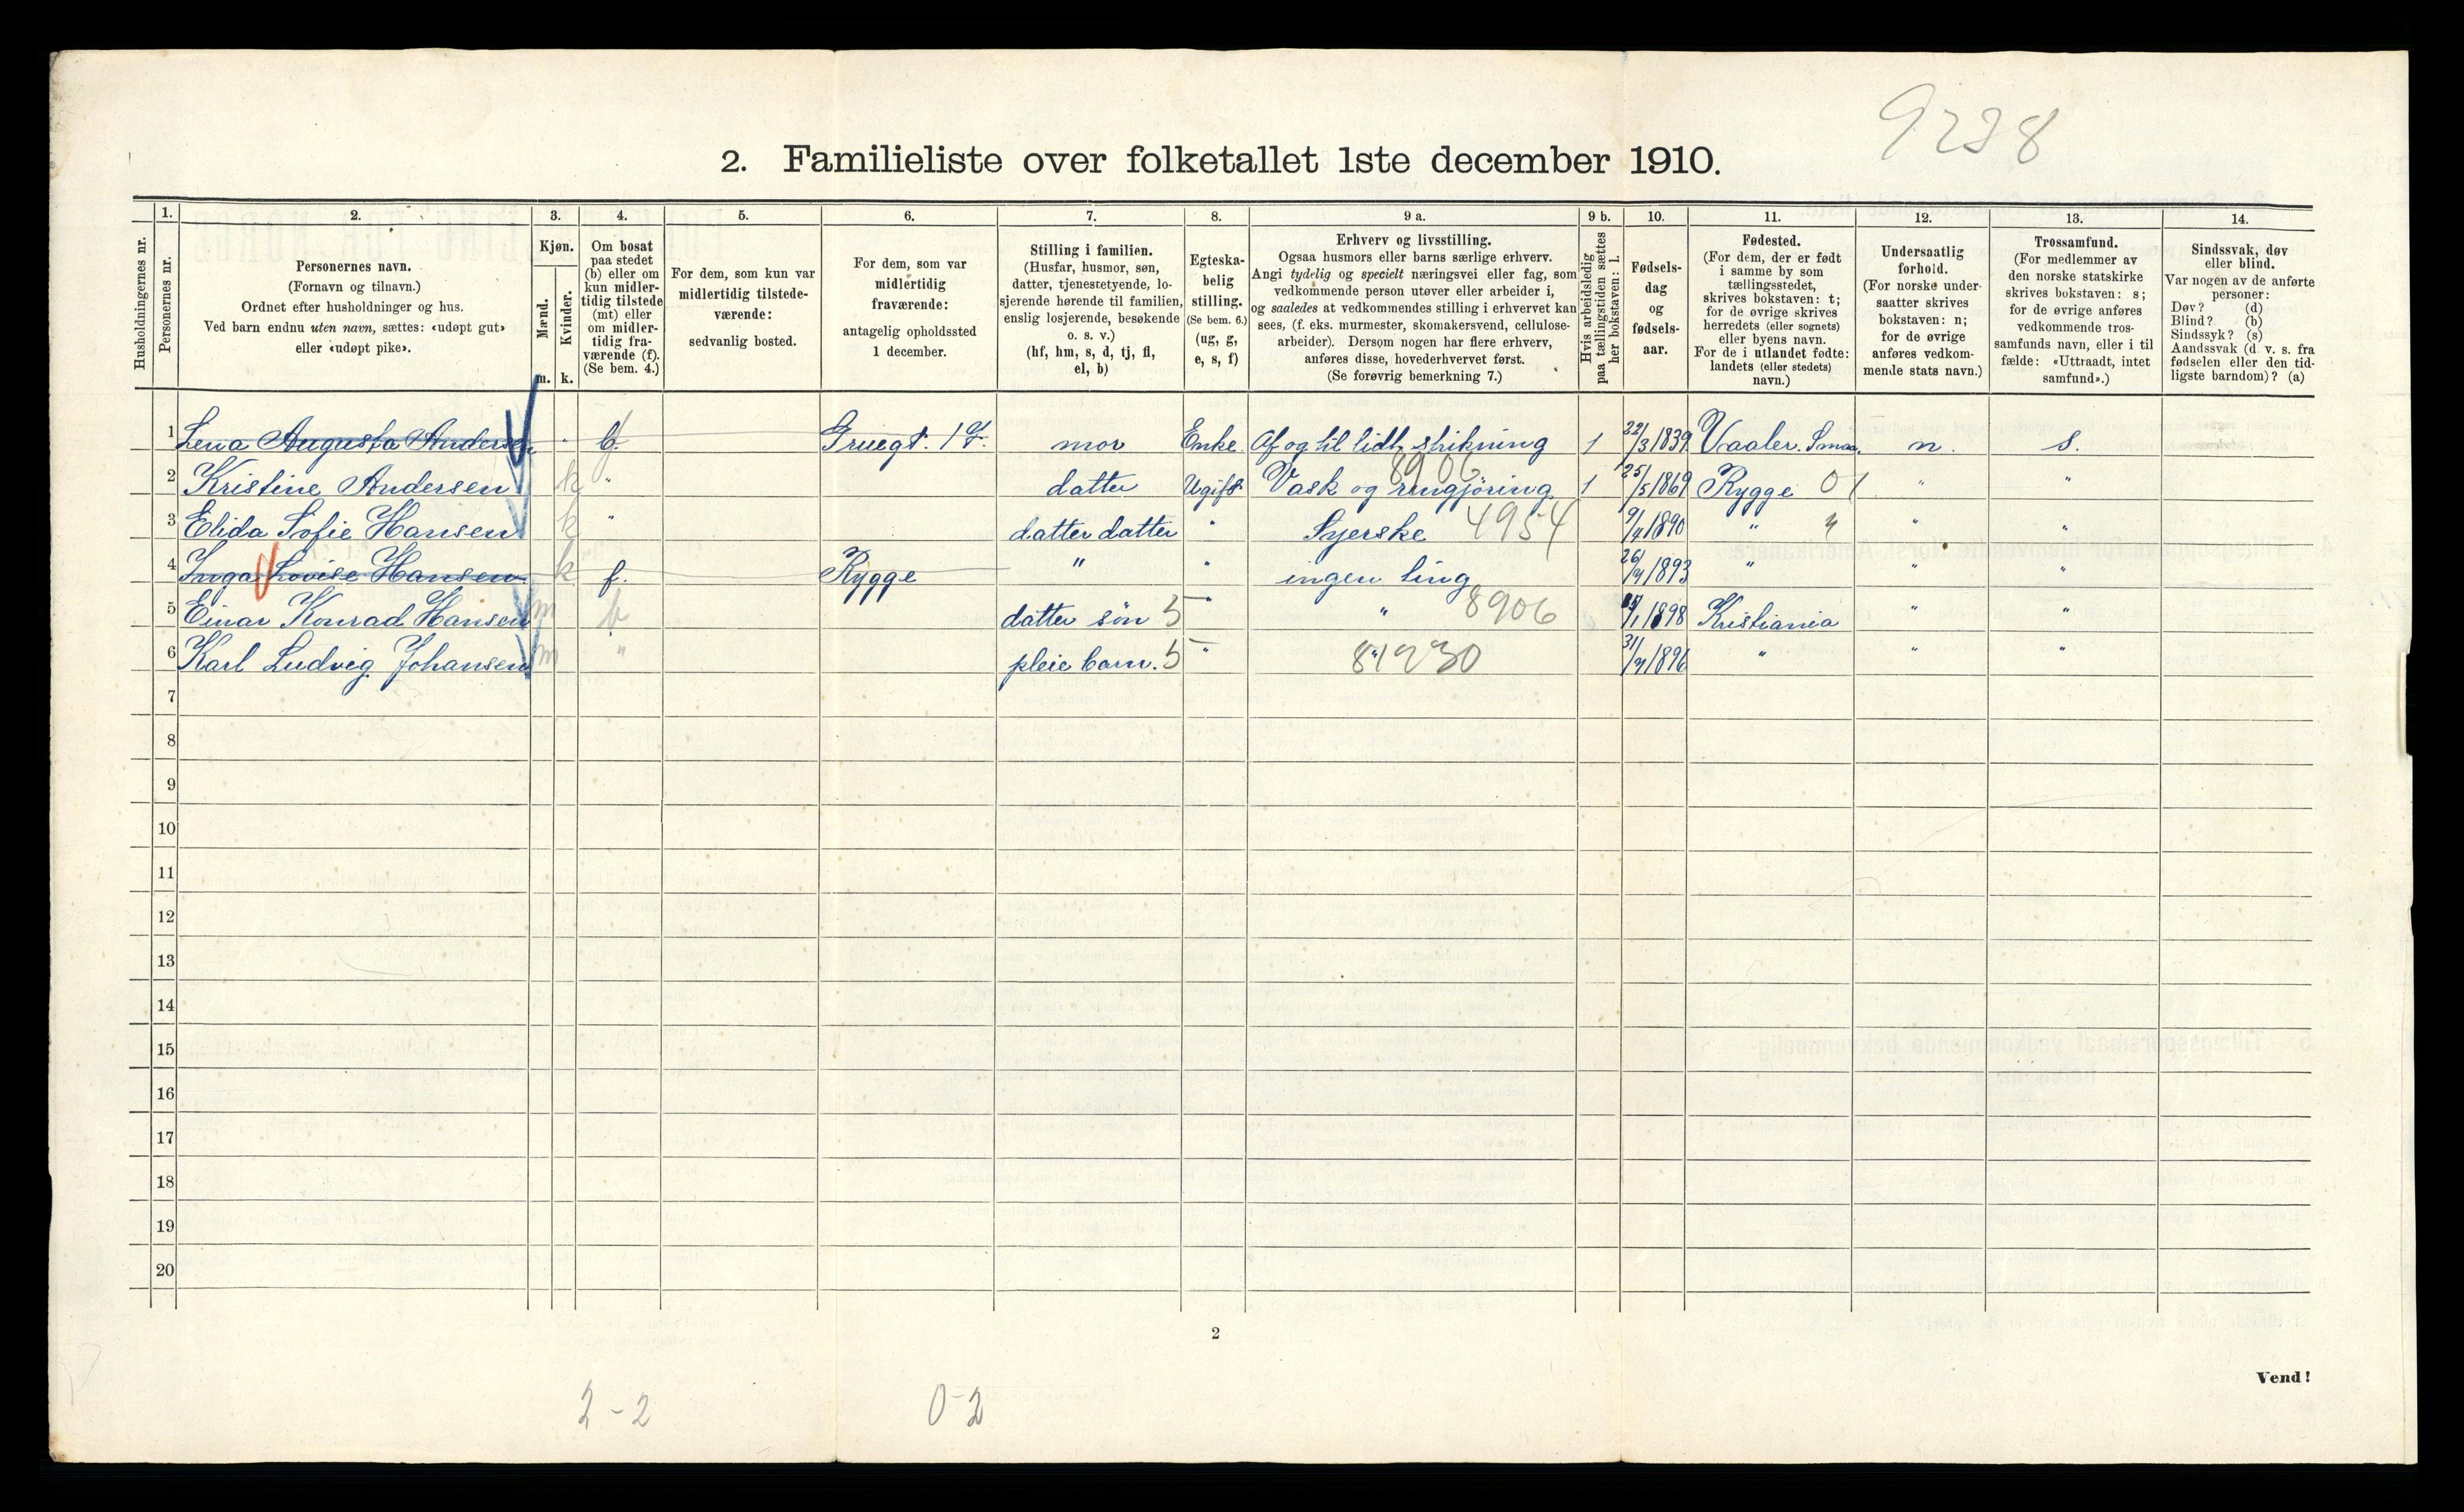 9238
2. Familieliste over folketallet 1ste december 1910.
Husholdningernes nr.
1.
Personernes nr.
2.
Personernes navn.
(Fornavn og tilnavn.)
Ordnet efter husholdninger og hus.
Ved barn endnu uten navn, sættes: «udøpt gut»
eller «udøpt pike».
3.
Kjøn.
Mænd.
Kvinder.
m. k.
4.
Om bosat
paa stedet
(b) eller om
kun midler-
tidig tilstede
(mt) eller
om midler-
tidig fra-
værende (f).
(Se bem. 4.)
5.
For dem, som kun var
midlertidig tilstede-
værende:
sedvanlig bosted.
6.
For dem, som var
midlertidig
fraværende:
antagelig opholdssted
1 december.
7.
Stilling i familien.
(Husfar, husmor, søn,
datter, tjenestetyende, lo-
sjerende hørende til familien,
enslig losjerende, besøkende
o. s. v.)
(hf, hm, s, d, tj, fl,
el, b)
8.
Egteska-
belig
stilling.
(Se bem. 6.)
(ug, g,
e, s, f)
9 a.
Erhverv og livsstilling.
Ogsaa husmors eller barns særlige erhverv.
Angi tydelig og specielt næringsvei eller fag, som
vedkommende person utøver eller arbeider i,
og saaledes at vedkommendes stilling i erhvervet kan
sees, (f. eks. murmester, skomakersvend, cellulose-
arbeider). Dersom nogen har flere erhverv,
anføres disse, hovederhvervet først.
(Se forøvrig bemerkning 7.)
9 b.
Hvis arbeidsledig
paa tællingstiden sættes
her bokstaven: l.
10.
Fødsels-
dag
og
fødsels-
aar.
11.
Fødested.
(For dem, der er født
i samme by som
tællingsstedet,
skrives bokstaven: t;
for de øvrige skrives
herredets (eller sognets)
eller byens navn.
For de i utlandet fødte:
landets (eller stedets)
navn.)
12.
Undersaatlig
forhold.
(For norske under-
saatter skrives
bokstaven: n;
for de øvrige
anføres vedkom-
mende stats navn.)
13.
Trossamfund.
(For medlemmer av
den norske statskirke
skrives bokstaven: s;
for de øvrige anføres
vedkommende tros-
samfunds navn, eller i til
fælde: «Uttraadt, intet
samfund».)
14.
Sindssvak, døv
eller blind.
Var nogen av de anførte
personer:
Døv? (d)
Blind? (b)
Sindssyk? (s)
Aandssvak (d. v. s. fra
fødselen eller den tid-
ligste barndom)? (a)
1 Lena Augusta Andersen mor Enke Af og til lidt strikning 1 22/3 1839 Vaaler. Smaa. n. s.
2 Kristine Andersen k " datter Ugift Vask og rengjöring 8906 1 25/5 1869 Rygge 01 " "
3 Elida Sofie Hansen k " datter datter " Syerske 4954 1890 " " "
4 Inga Lovise Hansen k f. Rygge " " ingen ting 1893 " " "
5 Einar Konrad Hansen m b datter sön 5 " " 8906 1898 Kristiania " "
6 Karl Ludvig Johansen m " pleie barn. 5 " " 1896 " " "
7
8
9
10
11
12
13
14
15
16
17
18
19
20
2
Vend!
2-2 0-2